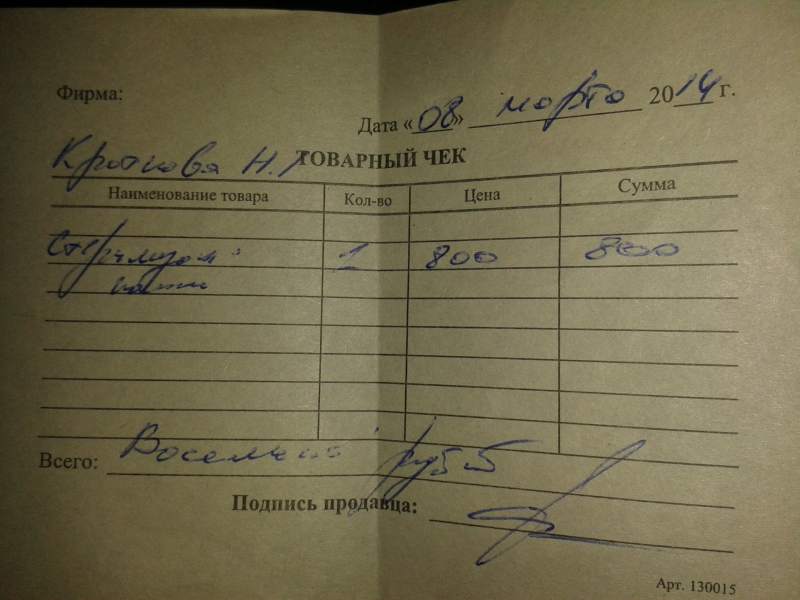 Фирма:
Дата «08» марта 2014 г.
Н.
ТОВАРНЫЙ ЧЕК
Наименование товара Кол-во Цена Сумма
1 800 800
Всего: Восемьсот руб
Подпись продавца:
Арт. 130015